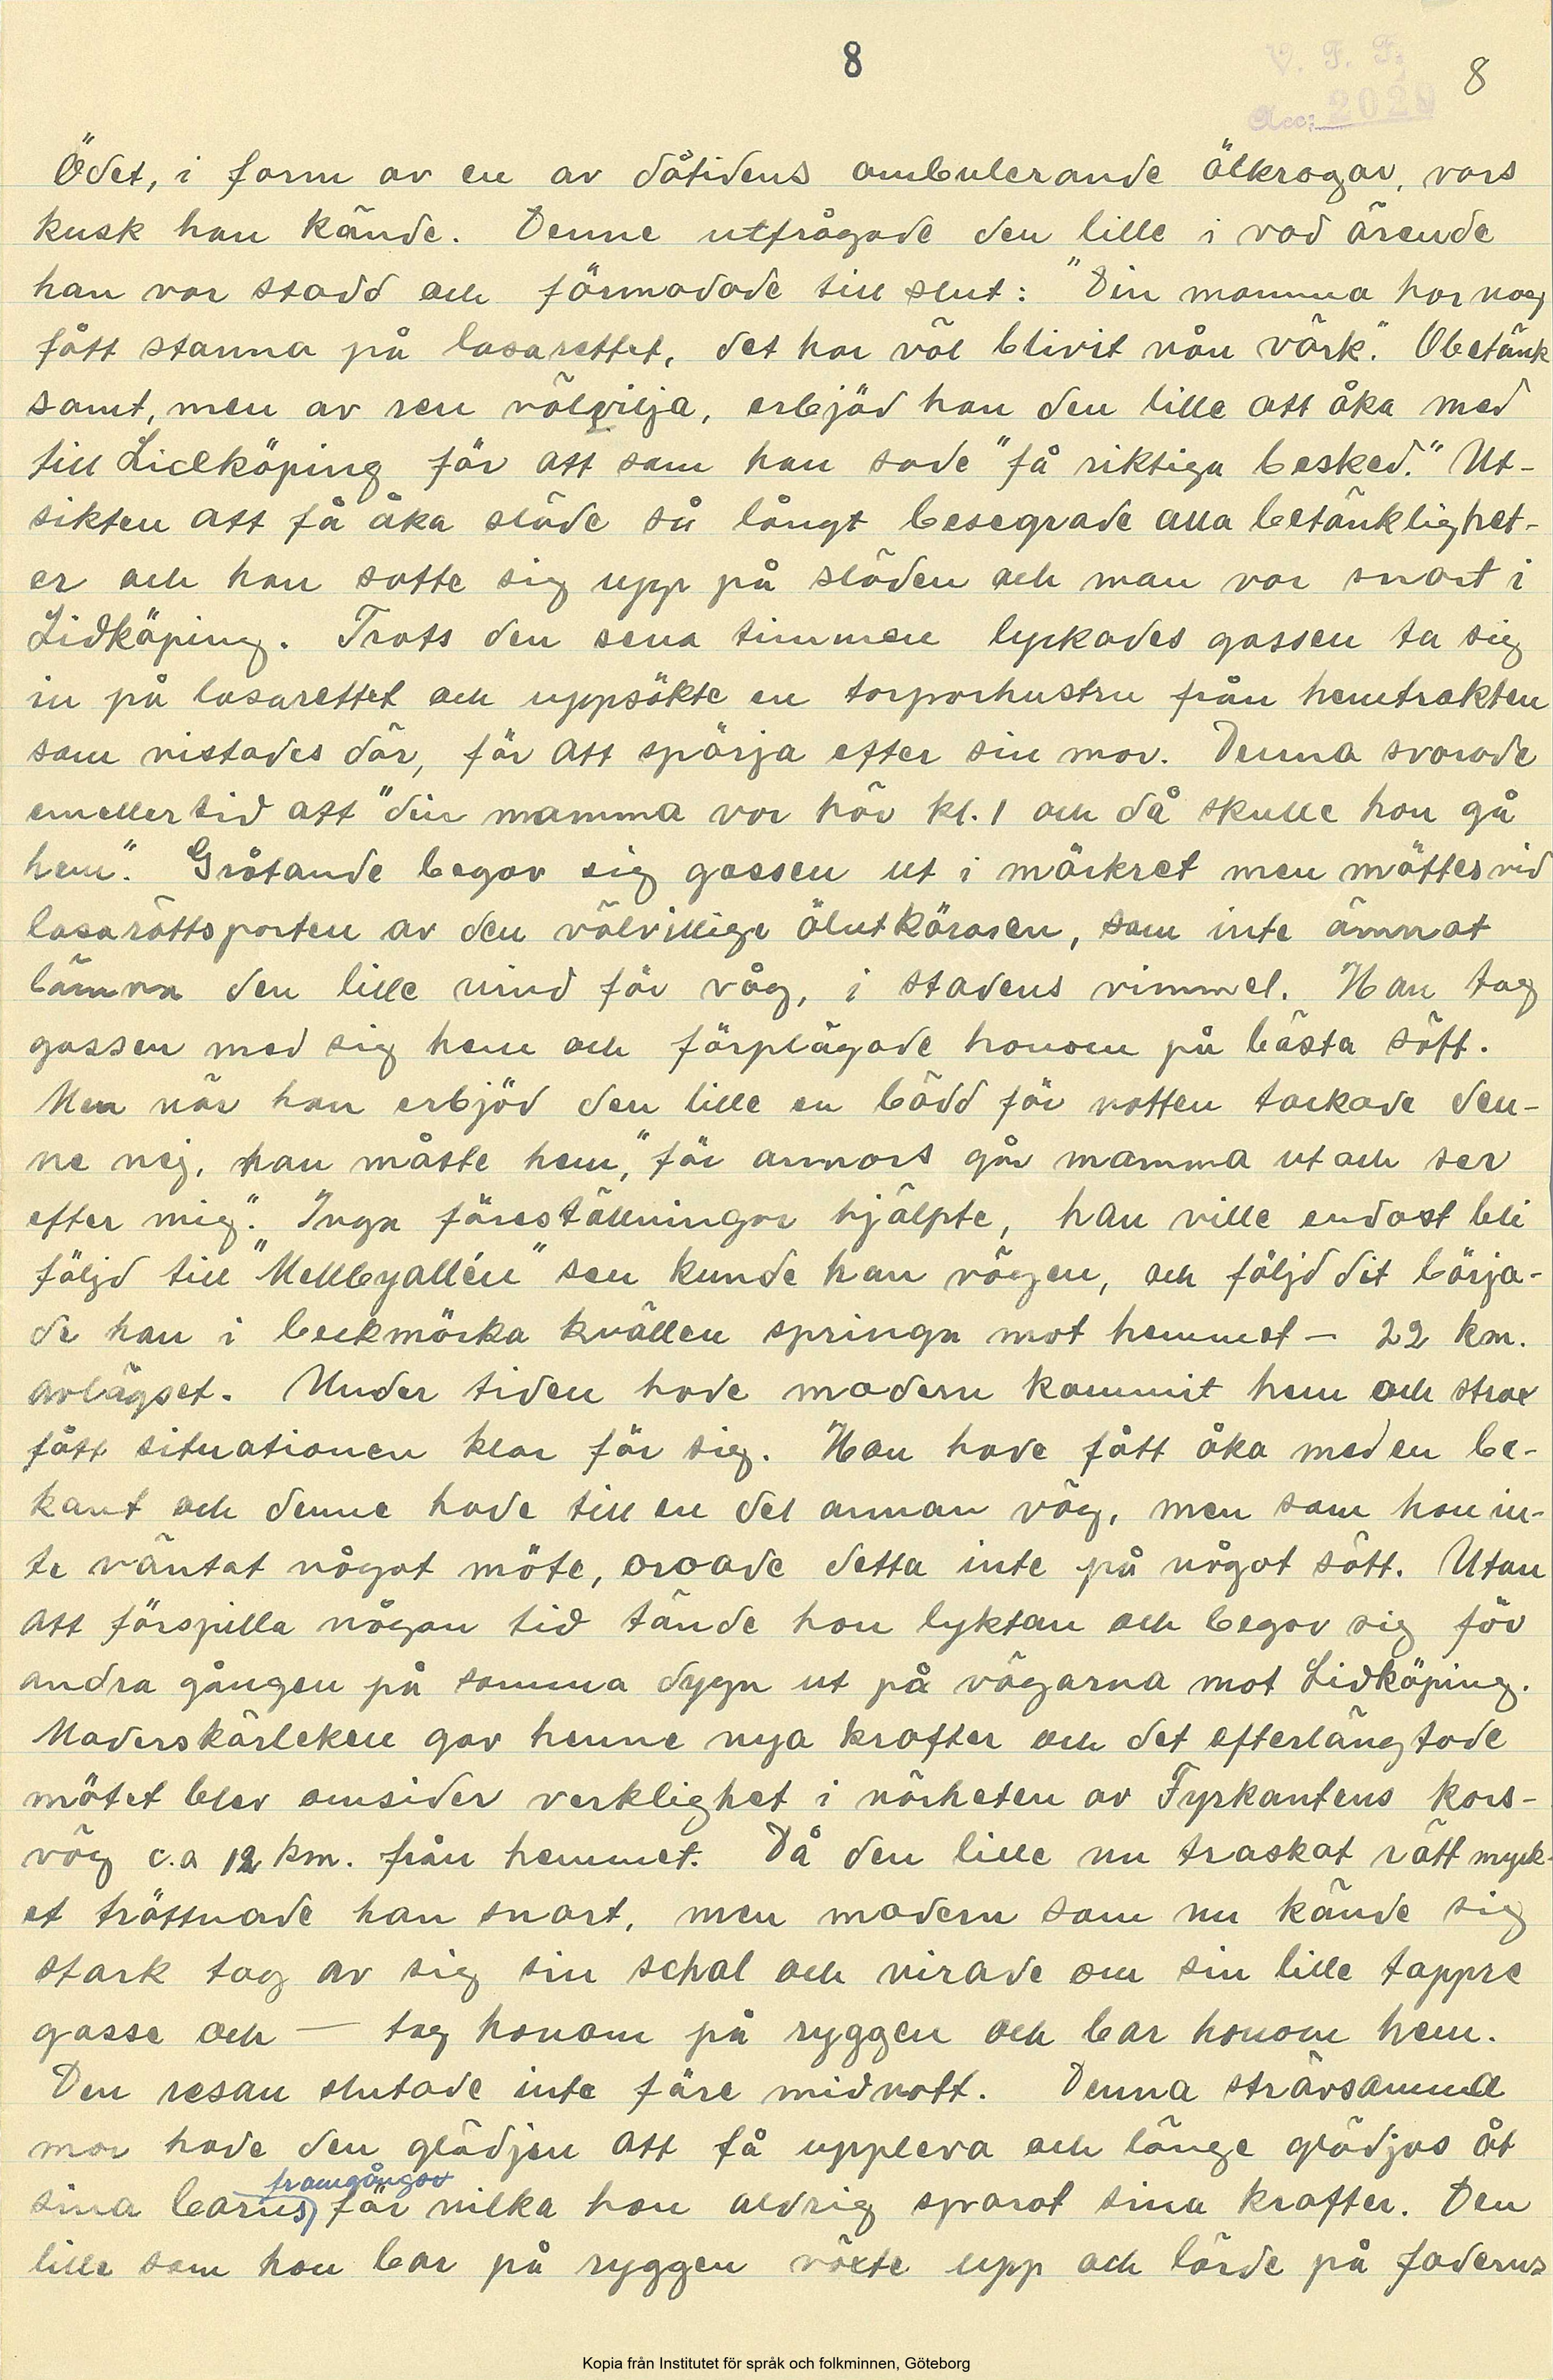 8
V. F. F.
8
Acc: 2029
Ödet, i form av en av dåtidens ambulerande ölkrogar, vars
kusk han kände. Denne utfrågade den lille i vad ärende
han var stadd och förmodade till slut: "Din mamma har nog
fått stanna på lasarettet, det har väl blivit nån värk." Obetänk
samt, men av ren välvilja, erbjöd han den lille att åka med
till Lidköping för att som han sade "få riktiga besked." Ut-
sikten att få åka släde så långt besegrade alla betänklighet-
er och han satte sig upp på släden och man var snart i
Lidköping. Trots den sena timmen lyckades gossen ta sig
in på lasarettet och uppsökte en torparhustru från hemtrakten
som vistades där, för att spörja efter sin mor. Denna svarade
emellertid att "din mamma var här kl. 1 och då skulle hon gå
hem". Gråtande begav sig gossen ut i mörkret men möttes vid
lasarättsporten av den välvillige ölutköraren, som inte ämnat
lämna den lille vind för våg, i stadens vimmel. Han tog
gossen med sig hem och förplägade honom på bästa sätt.
Men när han erbjöd den lille en bädd för natten tackade den-
ne nej, han måste hem, "för annars går mamma ut och ser
efter mig". Inga föreställningar hjälpte, han ville endast bli
följd till "Mellbyallén" sen kunde han vägen, och följd dit börja-
de han i beckmörka kvällen springa mot hemmet — 22 km.
avlägset. Under tiden hade modern kommit hem och strax
fått situationen klar för sig. Hon hade fått åka med en be-
kant och denne hade till en del annan väg, men som hon in-
te väntat något möte, oroade detta inte på något sätt. Utan
att förspilla någon tid tände hon lyktan och begav sig för
andra gången på samma dygn ut på vägarna mot Lidköping.
Moderskärleken gav henne nya krafter och det efterlängtade
mötet blev omsider verklighet i närheten av Fyrkantens kors-
väg c.a 12 km. från hemmet. Då den lille nu traskat rätt myck-
et tröttnade han snart, men modern som nu kände sig
stark tog av sig sin schal och virade om sin lille tappre
gosse och — tog honom på ryggen och bar honom hem.
Den resan slutade inte före midnatt. Denna strävsamma
mor hade den glädjen att få uppleva och länge glädjas åt
framgångar
sina barns, för vilka hon aldrig sparat sina krafter. Den
lille som hon bar på ryggen växte upp och lärde på faderns
Kopia från Institutet för språk och folkminnen, Göteborg